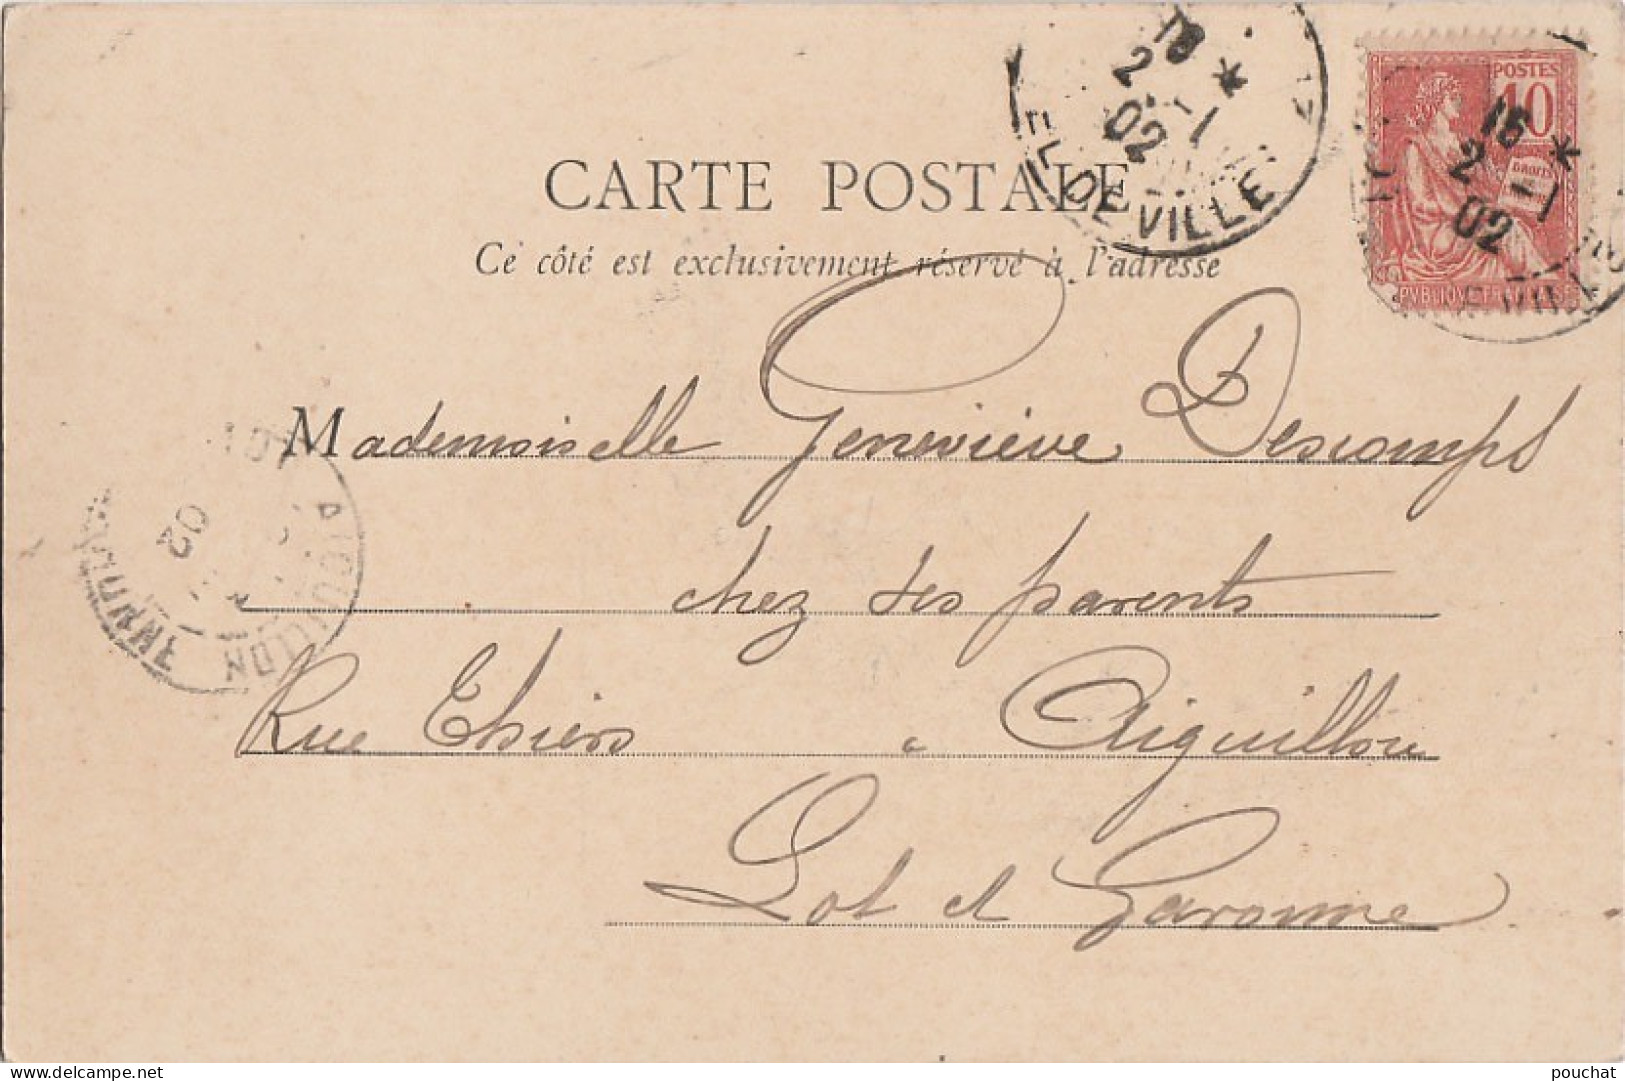 18 *
2 - 1
02
EL DE VILLE
POSTES
10
DROITS
16 *
2 - 1
02
CARTE POSTALE
Ce côté est exclusivement réservé à l'adresse
Mademoiselle Geneviève Descamps
chez ses parents
Rue Thiers à Aiguillon
Lot et Garonne
AIGUILLON
LOT
02
© delcampe.net
pouchat